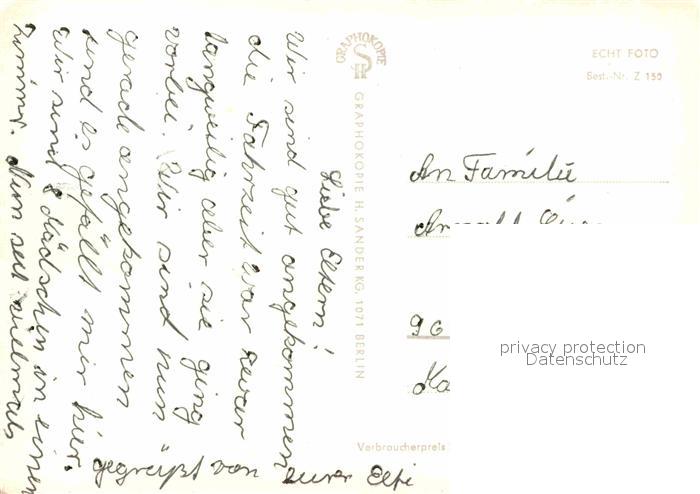 Liebe Eltern!
Wir sind gut angekommen
die Fahrzeit war zwar
langweilig aber sie ging
vorbei. Wir sind nun
gerade angekommen
und es gefällt mir hier.
Wir sind 8 Mädschen in einen
Zimmer. Nun seit vielmals
gegrüßt von eurer Elfi
GRAPHOKOPIE
GRAPHOKOPIE H. SANDER KG, 1071 BERLIN
ECHT FOTO
Best.-Nr. Z 150
An Familie
96
Ka
Verbraucherpreis
privacy protection
Datenschutz